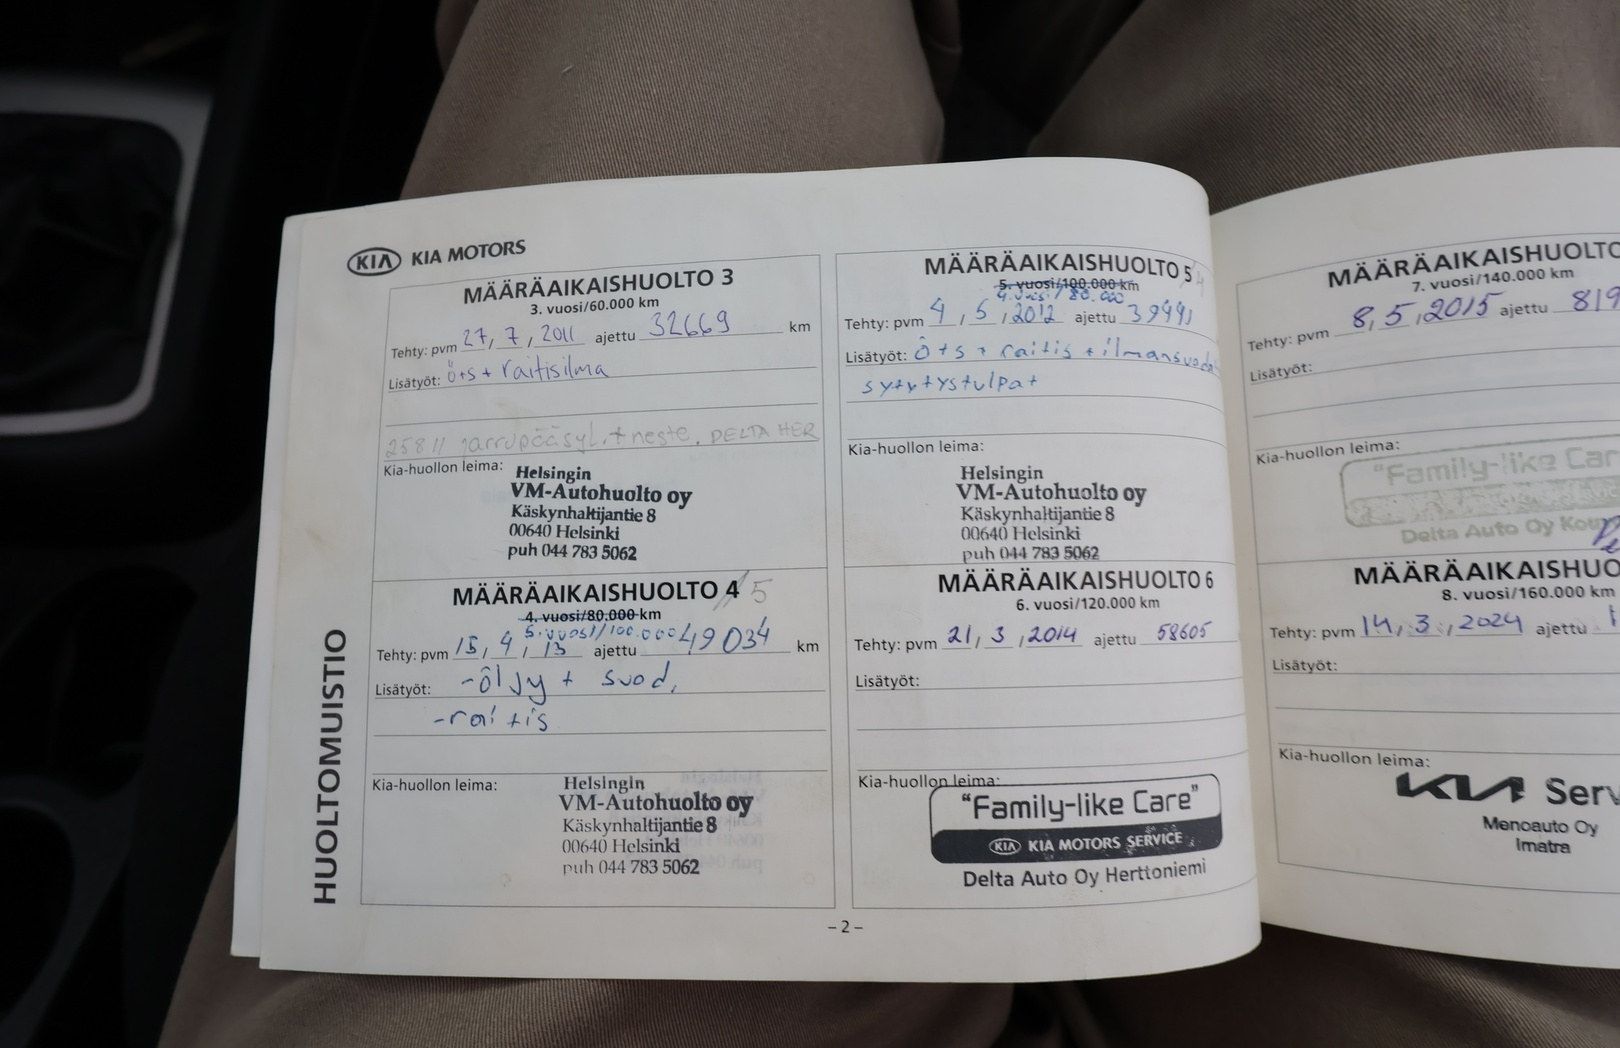 KIA KIA MOTORS
HUOLTOMUISTIO
MÄÄRÄAIKAISHUOLTO 3
3. vuosi/60.000 km
Tehty: pvm 27, 7, 2011 ajettu 32669 km
Lisätyöt: ö+s + raitisilma
25811 jarrupääsyl. + neste. DELTA HER
Kia-huollon leima:
Helsingin
VM-Autohuolto oy
Käskynhaltijantie 8
00640 Helsinki
puh 044 783 5062
MÄÄRÄAIKAISHUOLTO 4 5
4. vuosi/80.000 km
5. vuosi/100.000
Tehty: pvm 15, 4, 13 ajettu 49034 km
Lisätyöt: -öljy + suod,
-raitis
Kia-huollon leima:
Helsingin
VM-Autohuolto oy
Käskynhaltijantie 8
00640 Helsinki
puh 044 783 5062
MÄÄRÄAIKAISHUOLTO 5 4
5. vuosi/100.000 km
4. vuosi/80.000
Tehty: pvm 4, 5, 2012 ajettu 39441
Lisätyöt: ö+s + raitis + ilmansuoda
sytytystulpat
Kia-huollon leima:
Helsingin
VM-Autohuolto oy
Käskynhaltijantie 8
00640 Helsinki
puh 044 783 5062
MÄÄRÄAIKAISHUOLTO 6
6. vuosi/120.000 km
Tehty: pvm 21, 3, 2014 ajettu 58605
Lisätyöt:
Kia-huollon leima:
"Family-like Care"
KIA KIA MOTORS SERVICE
Delta Auto Oy Herttoniemi
– 2 –
MÄÄRÄAIKAISHUOLTO
7. vuosi/140.000 km
Tehty: pvm 8, 5, 2015 ajettu 819
Lisätyöt:
Kia-huollon leima:
"Family-like Car
Delta Auto Oy Kou
MÄÄRÄAIKAISHUO
8. vuosi/160.000 km
Tehty: pvm 14, 3, 2024 ajettu
Lisätyöt:
Kia-huollon leima:
KIA Serv
Menoauto Oy
Imatra